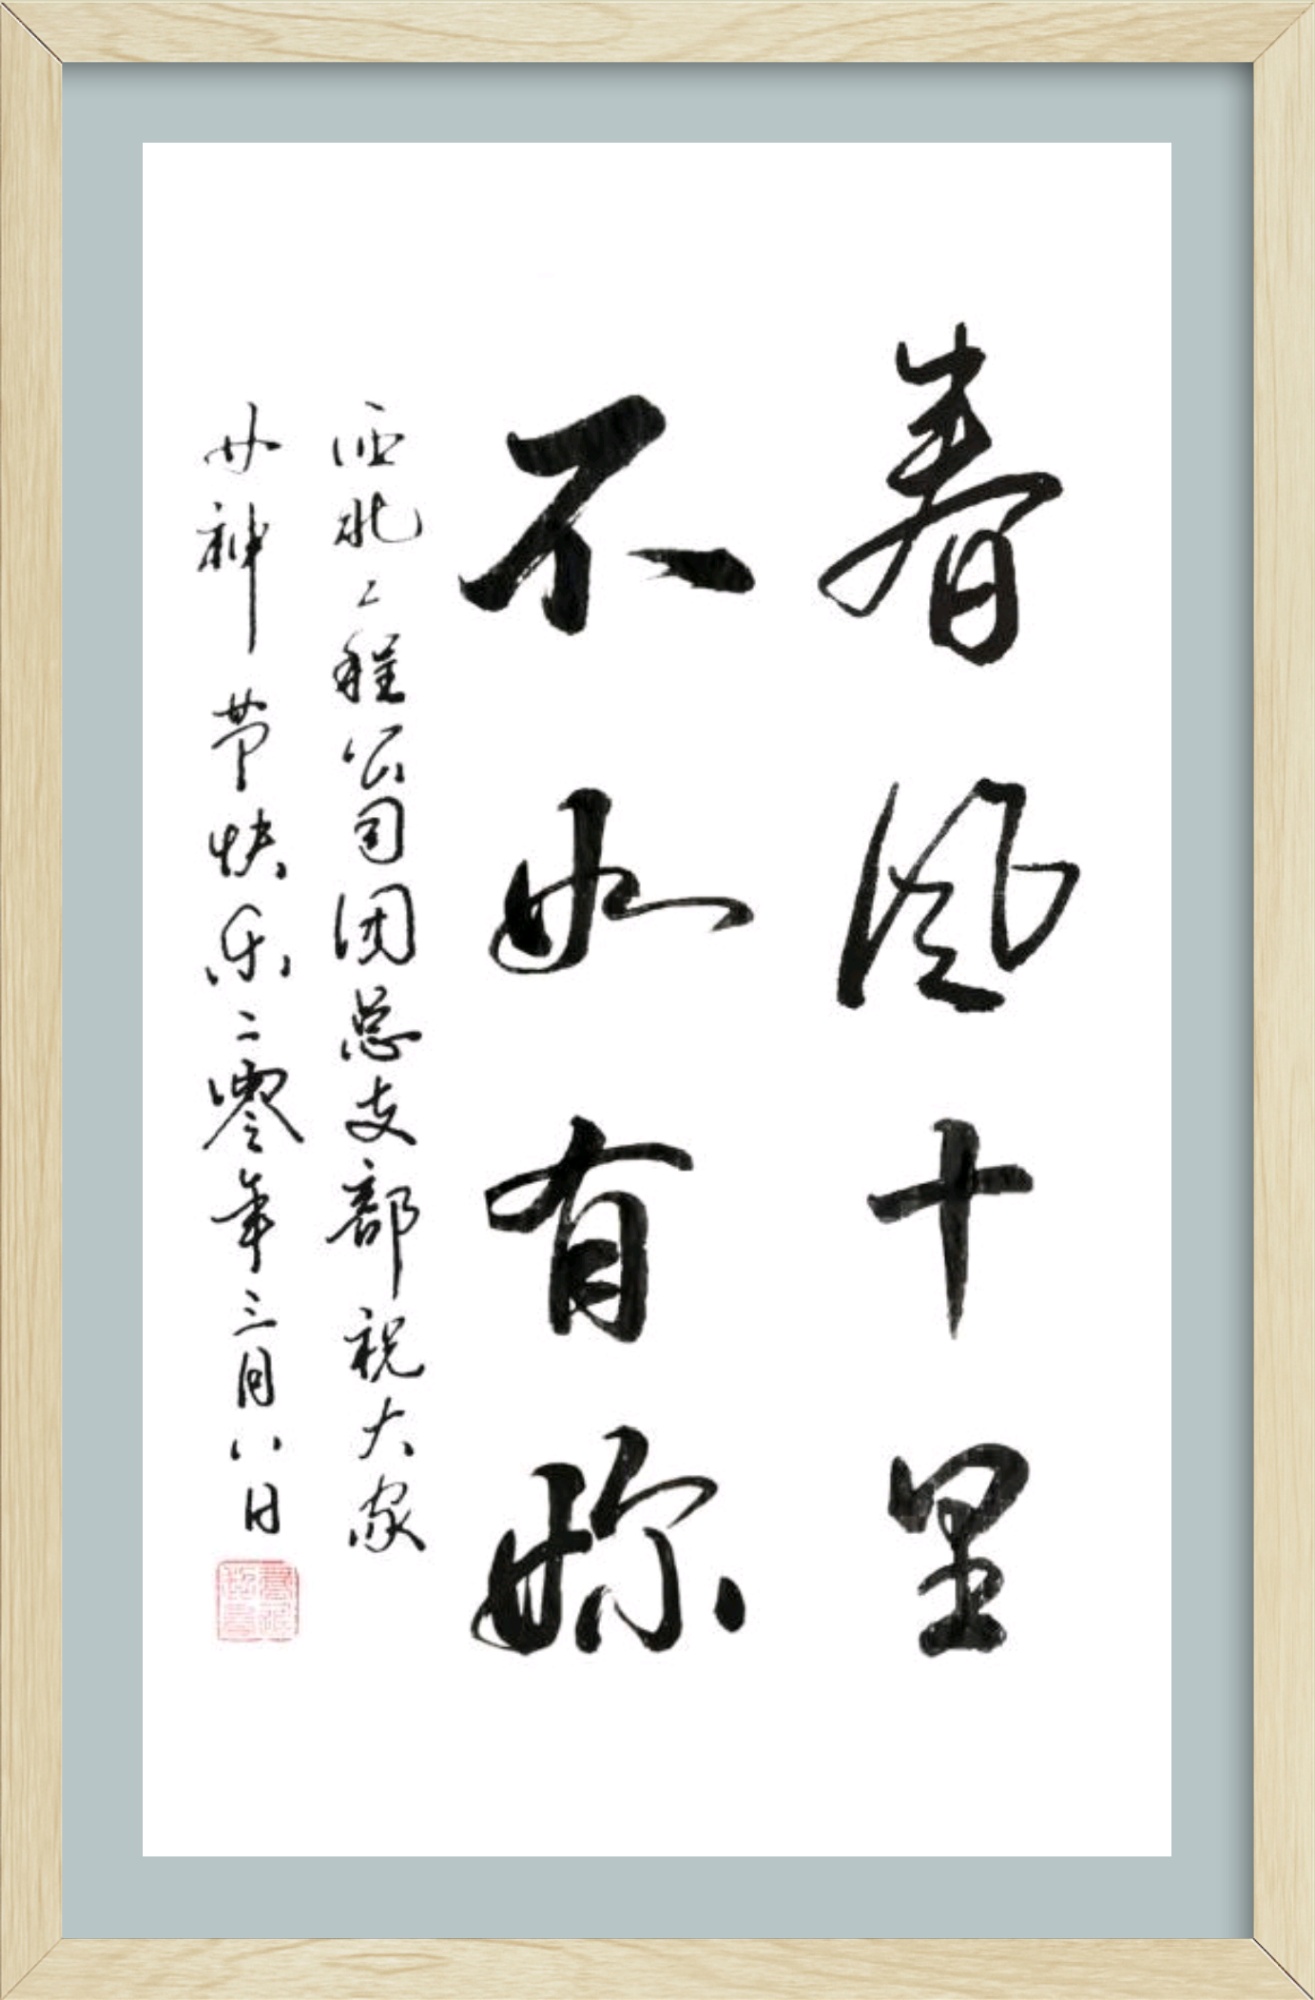 春风十里
不如有妳
西北工程公司团总支部祝大家
女神节快乐二零年三月八日